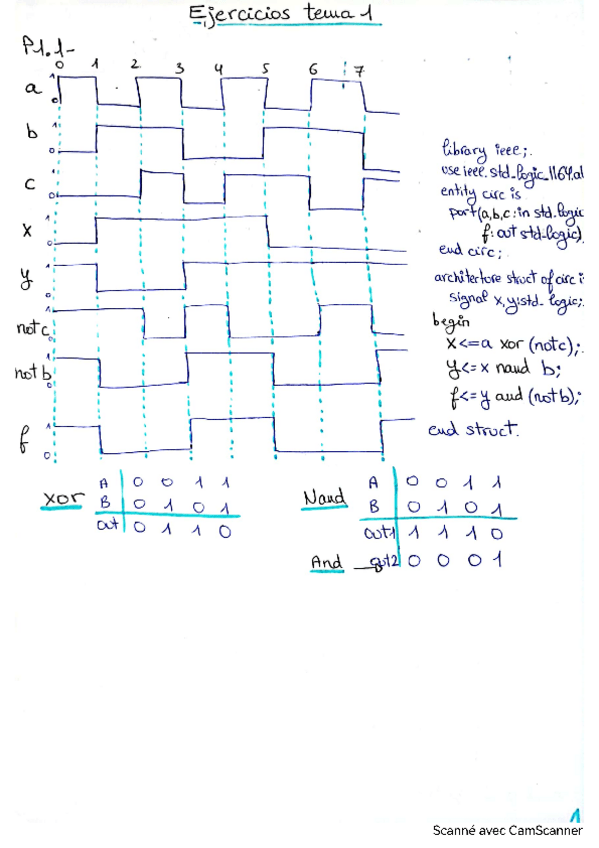 Ejercicios tema 1
P1.1-
0 1 2 3 4 5 6 7
a 1 0
b 1 0
c 1 0
x 1 0
y 1 0
not c 1 0
not b 1 0
f 1 0
library ieee;
use ieee.std_logic_1164.al
entity circ is
port(a,b,c:in std_logic
f:out std_logic)
end circ;
architecture struct of circ i
signal x,y:std_logic;
begin
x<=a xor (not c);
y<=x nand b;
f<=y and (not b);
end struct.
xor
A 0 0 1 1
B 0 1 0 1
out 0 1 1 0
Nand
A 0 0 1 1
B 0 1 0 1
out1 1 1 1 0
And out2 0 0 0 1
1
Scanné avec CamScanner